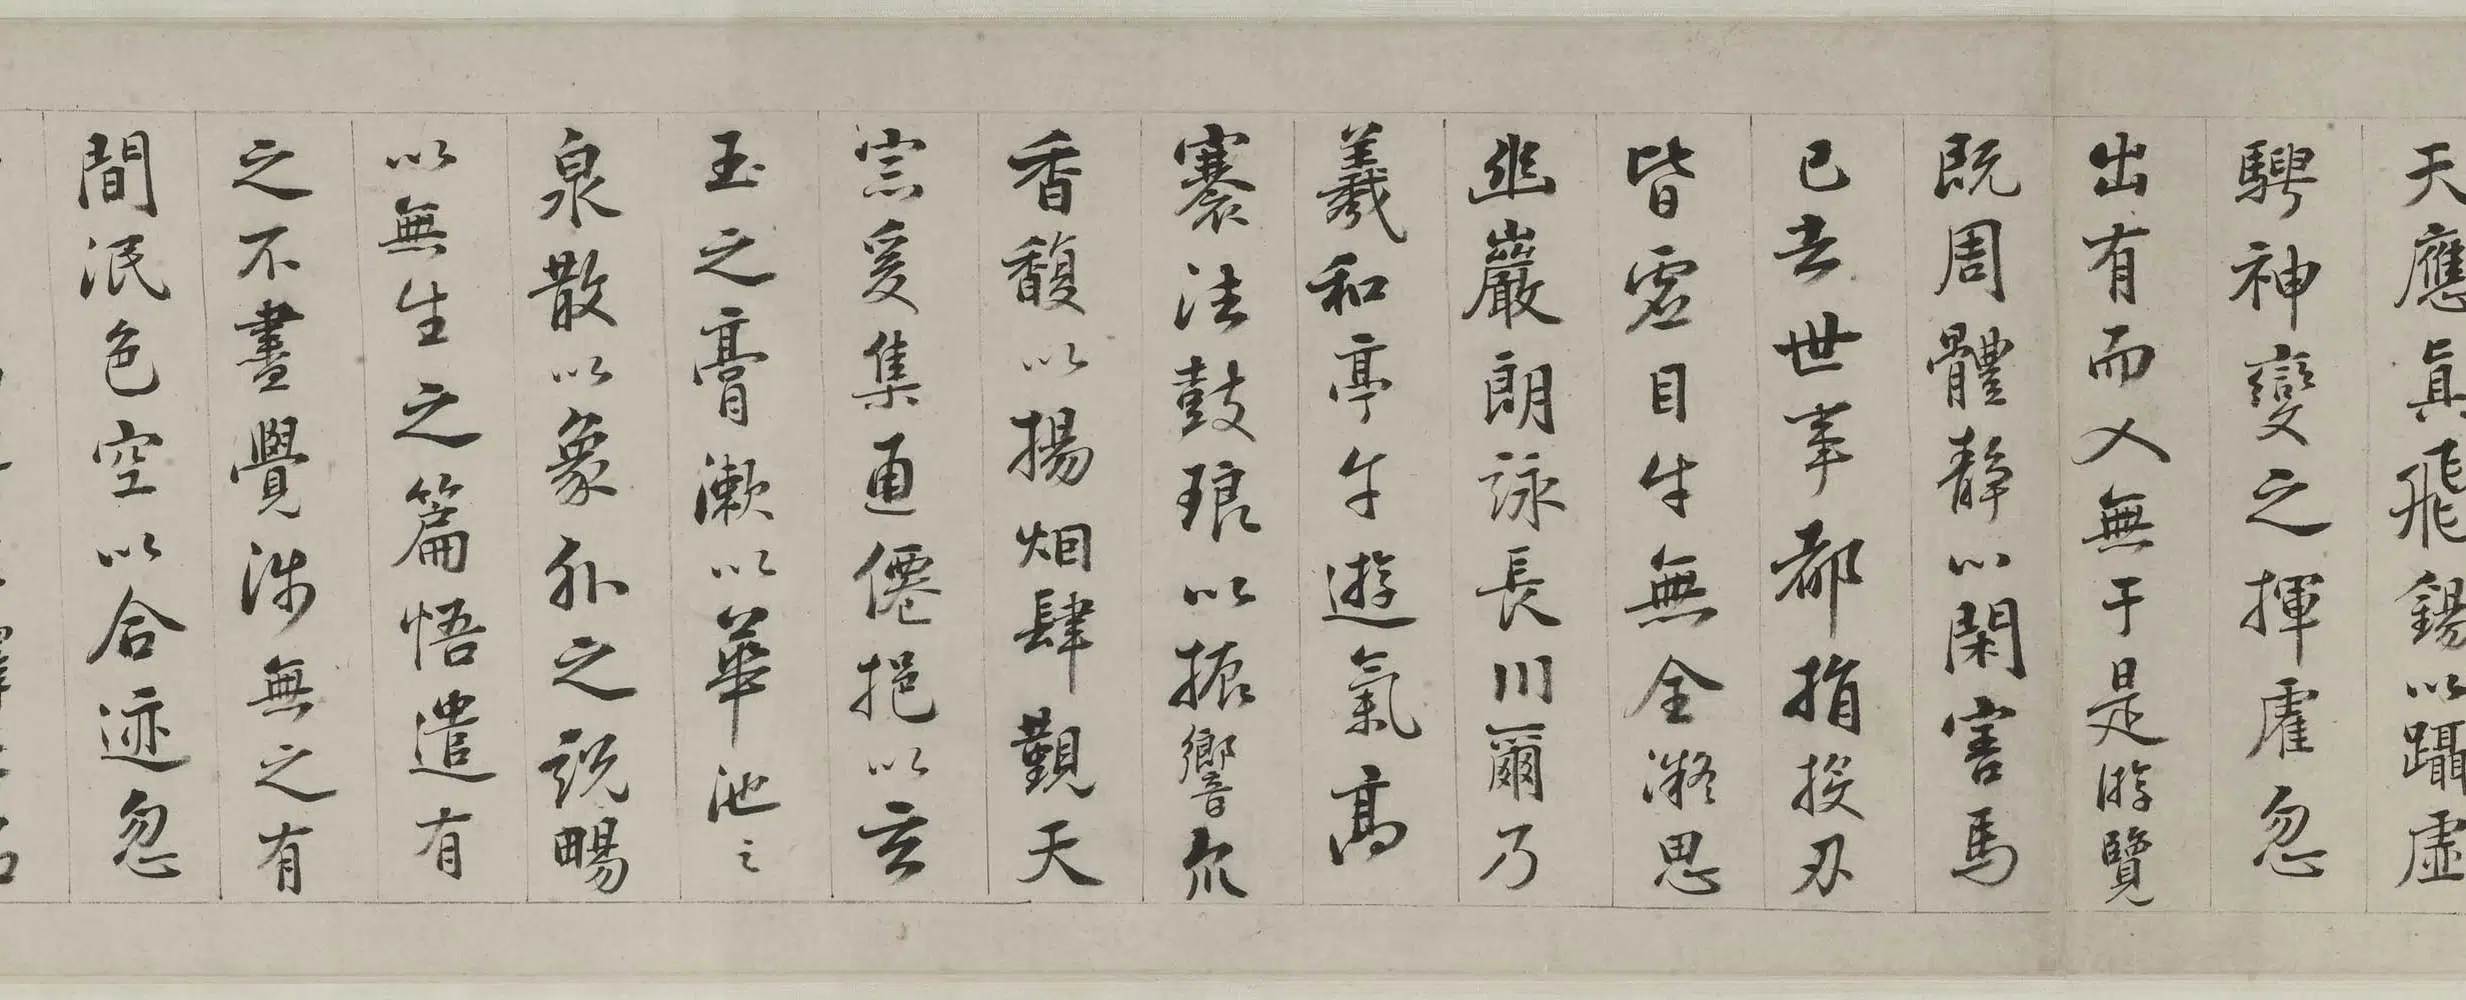 天應真飛錫以躡虛
騁神變之揮霍忽
出有而入無于是游覽
既周體静以閑害馬
已去世事都捐投刃
皆虛目牛無全凝思
幽巖朗詠長川爾乃
羲和亭午遊氣高
褰法鼓琅以振響眾
香馥以揚烟肆覲天
宗爰集通僊挹以玄
玉之膏漱以華池之
泉散以象外之説暢
以無生之篇悟遣有
之不盡覺涉無之有
間泯色空以合迹忽